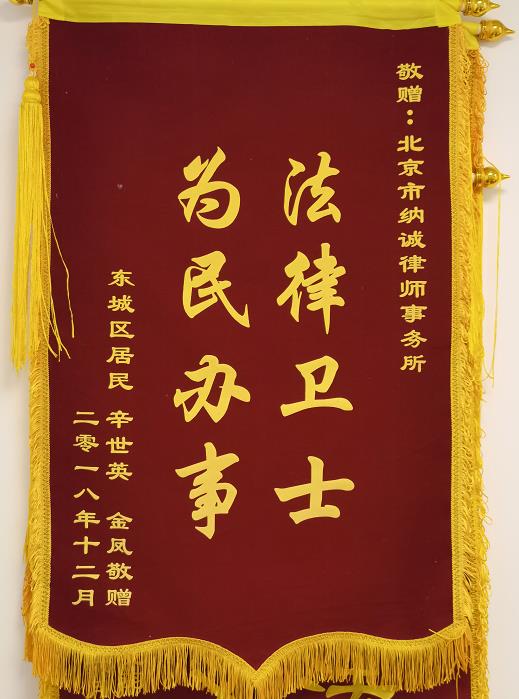 敬赠：北京市纳诚律师事务所
法律卫士
为民办事
东城区居民 辛世英 金凤敬赠
二零一八年十二月